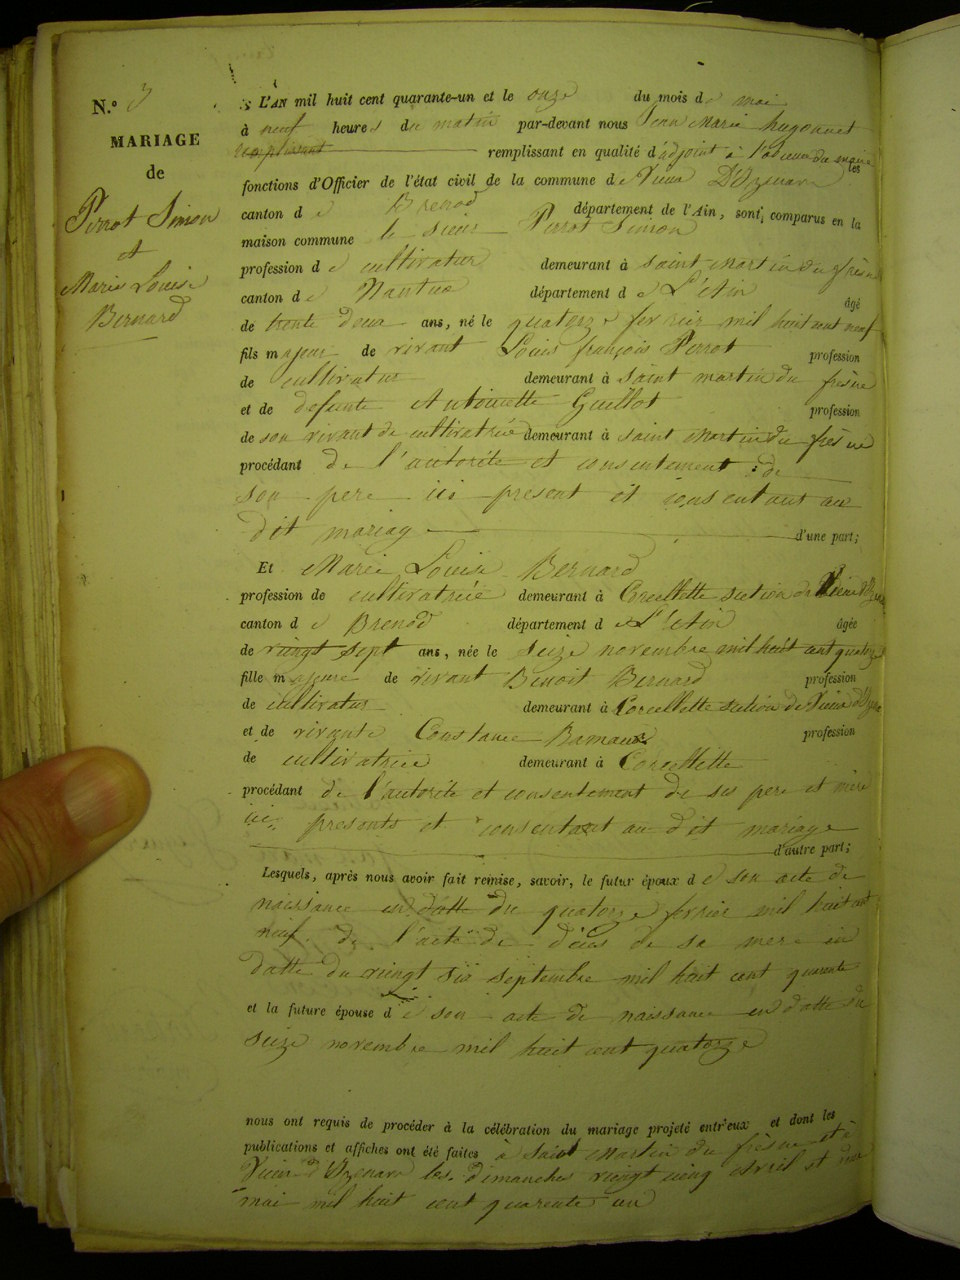 N.° 3
MARIAGE
de
Perrot Simon
et
Marie Louise
Bernard
L'AN mil huit cent quarante-un et le onze du mois de mai
à neuf heures du matin par-devant nous Jean Marie hugonnet
remplissant en qualité d'adjoint à l'absence du maire les
fonctions d'Officier de l'état civil de la commune de Vieux D'Izenave
canton de Brenod département de l'Ain, sont comparus en la
maison commune le sieur Perrot Simon
profession de cultivatur demeurant à saint Martin du frêsne
canton de Nantua département de L'Ain âgé
de trente deux ans, né le quatorze fevrier mil huit cent neuf
fils majeur de vivant Louis françois Perrot profession
de cultivatur demeurant à saint martin du frêsne
et de defunte Antoinette Guillot profession
de son vivant de cultivatrice demeurant à saint Martin du frêsne
procédant de l'autorité et consentement de
son pere ici present et consentant au
dit mariage d'une part;
Et Marie Louise Bernard
profession de cultivatrice demeurant à Corcellette section de Vieux d'Izenave
canton de Brenod département de L'Ain âgée
de vingt sept ans, née le seize novembre mil huit cent quatorze
fille majeure de vivant Benoit Bernard profession
de cultivatur demeurant à Corcellette section de Vieux d'Izenave
et de vivante Constance profession
de cultivatrice demeurant à Corcellette
procédant de l'autorité et consentement de ses pere et mere
ici presents et consentant au dit mariage
d'autre part;
Lesquels, après nous avoir fait remise, savoir, le futur époux de son acte de
naissance en datte du quatorze fevrier mil huit cent
neuf de l'acte de décès de sa mere en
datte du vingt six septembre mil huit cent quarante
et la future épouse de son acte de naissance en datte du
seize novembre mil huit cent quatorze
nous ont requis de procéder à la célébration du mariage projeté entr'eux et dont les
publications et affiches ont été faites à saint Martin du frêsne et à
Vieux d'Izenave les dimanches vingt cinq avril et deux
mai mil huit cent quarante un